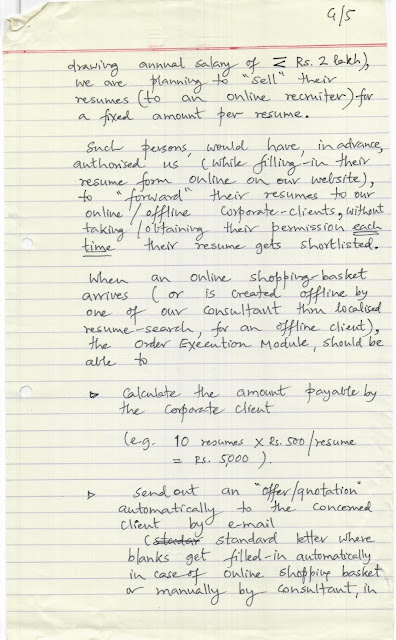 G/5
drawing annual salary of ≤ Rs. 2 lakh),
we are planning to "sell" their
resumes (to an online recruiter) for
a fixed amount per resume.
Such persons, would have, in advance,
authorised us (while filling-in their
resume form online on our website),
to "forward" their resumes to our
online/offline Corporate-clients, without
taking/obtaining their permission each
time their resume gets shortlisted.
When an online shopping-basket
arrives (or is created offline by
one of our consultant thru localised
resume-search, for an offline client),
the Order Execution Module, should be
able to
▷ Calculate the amount payable by
the Corporate Client
(e.g. 10 resumes X Rs. 500/resume
= Rs. 5,000).
▷ Send out an "offer/quotation"
automatically to the concerned
client by e-mail
(standard letter where
blanks get filled-in automatically
in case of online shopping basket
or manually by consultant, in